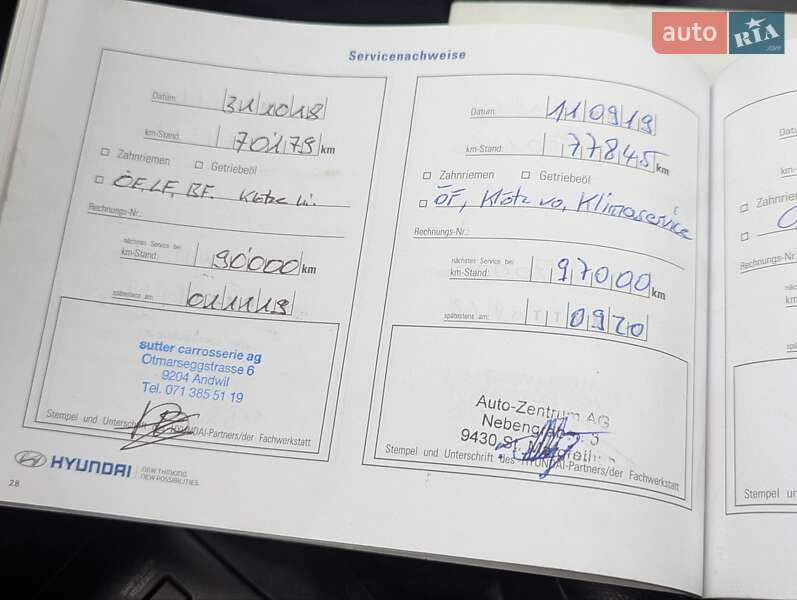 auto RIA.com
Servicenachweise
Datum: 311018
km-Stand: 70179 km
Zahnriemen Getriebeöl
ÖF, LF, BF. Klötze hi.
Rechnungs-Nr.:
nächster Service bei
km-Stand: 90000 km
spätestens am: 011119
sutter carrosserie ag
Otmarseggstrasse 6
9204 Andwil
Tel. 071 385 51 19
Stempel und Unterschrift des HYUNDAI-Partners/der Fachwerkstatt
HYUNDAI NEW THINKING.
NEW POSSIBILITIES.
28
Datum: 110919
km-Stand: 77845 km
Zahnriemen Getriebeöl
ÖF, Klötz vo, Klimaservice
Rechnungs-Nr.:
nächster Service bei
km-Stand: 97000 km
spätestens am: TT0920
Auto-Zentrum AG
9430 St. Margrethen
Stempel und Unterschrift des HYUNDAI-Partners/der Fachwerkstatt
Datu
km-
Zahnrie
Rechnungs-Nr.
näch
km
spä
Stempel un